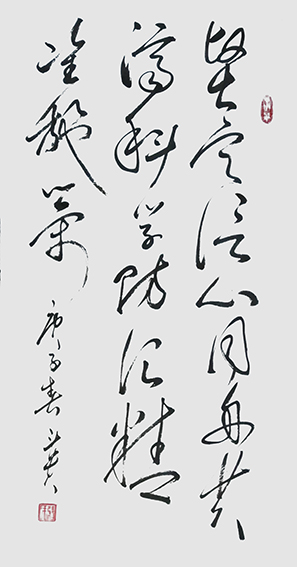 坚定信心同舟共
济科学防治精
准施策
庚子春